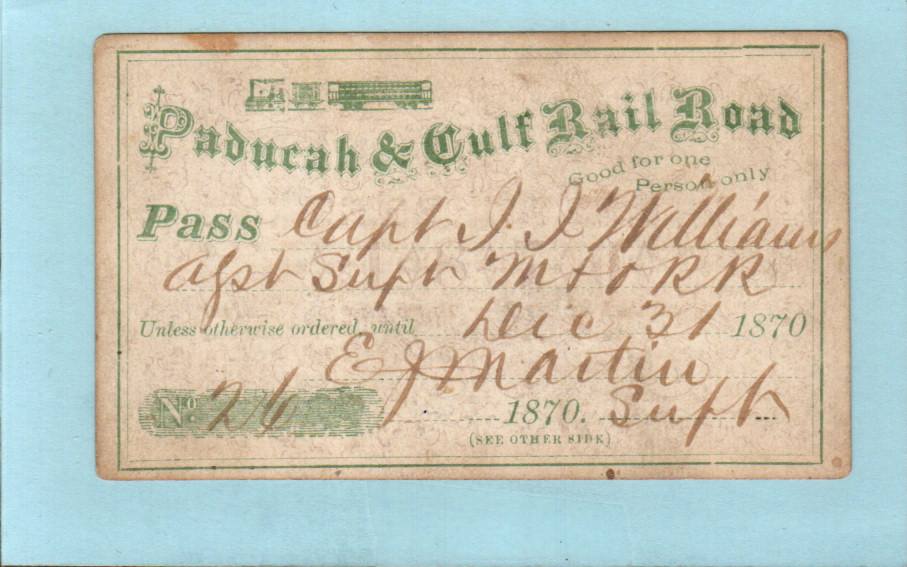 Paducah & Gulf Rail Road
Good for one
Person only
Pass Capt J. J. Williams
asst Supt M & O RR
Unless otherwise ordered, until Dec 31 1870
E J Martin
No. 26 1870. Supt
(SEE OTHER SIDE)